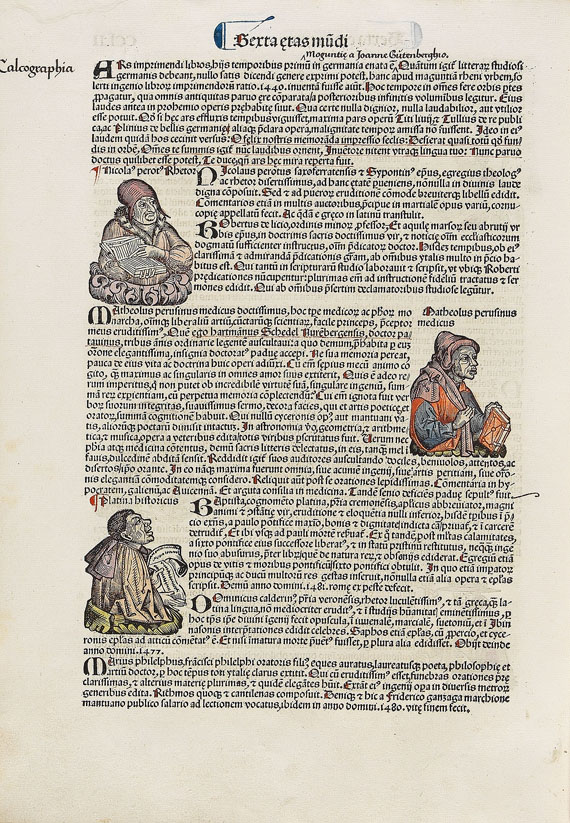 Sexta ętas mũdi
Moguntię a Joanne Gũtenberghio.
Calcographia
ARs imprimendi libros, hijs temporibus primũ in germania enata ẽ. Quãtum igit̃ litterar̃ studiosi
germanis debeant, nullo satis dicendi genere exprimi potest, hanc apud maguntiã rheni vrbem, so
lerti ingenio libror̃ imprimendor̃ ratio .1440. inventa fuisse aiũt. Hoc tempore in omnes fere orbis ptes
ꝓpagatur, qua omnis antiquitas paruo ęre cõparata, a posterioribus infinitis voluminibus legitur. Eius
laudes
esse potuit.
ca, ac Plinius de bellis germanię aliaq̃ pr̨clara opera, malignitate temporum amissa nõ fuissent.
laudem quidã hos cecinit versus: O felix nostris memorãda impressio seclis: Desierat quasi totũ qđ fun/
dis in orbe. Omnes te summis igit̃ nũc laudibus ornent, Inuẽtore nitent vtraq̃ lingua tuo: Nunc paruo
doctus quilibet esse potest. Te duce qñ ars hęc mira reperta fuit.
Nicola᷒ perot᷒ Rhetor
Nicolaus perotus saxoferatensis & Sypontin᷒ epũs, egregius theolog᷒
ac rhetor disertissimus, ad hanc etatẽ pueniens, nonnulla in diuinis laude
digna cõposuit. Sed & ad pueror̃ eruditionẽ cõmode breuiterq̃ libellũ edidit.
Comentarios etiã in multis auctoribus, pcipue in martiale opus variũ, cornu/
copię appellatũ fecit. Ac q̃dã e gręco in latinũ transtulit.
Robertus de licio, ordinis minor̃, pfessor: Et aquile marsor̃ seu
bis epũs, in doctrinis sacris doctissimus vir, & noticię oĩm ecclesiasticorum
dogmatũ sufficienter instructus, oĩm pdicator̃ doctor. Hisdẽ tempibus, ob ei᷒
clarissimã & admirandã pdicationis gram, ab omnibus ytalis multo in pcio ha/
bitus est. Qui tantũ in scripturarũ studio laborauit & scripsit, vt vbiq̃ Roberti
predicationes nũcupentur: plurimas eñi ad instructionẽ fideliũ tractatus & ser
mones edidit. Qui ab omnibus psertim declamatoribus studiose legũtur.
Matheolus perusinus
medicus
Matheolus perusinus medicus doctissimus, hoc tpe medicor̃ ac phõr̃ mo
narcha, oĩmq̃ liberaliũ artiũ, cũctarũq̃ scientiar̃, facile princeps, pceptor
meus eruditissim᷒. Quẽ ego hartmañus Schedel Nurẽbergensis, doctor pa/
tauinus, tribus ãnis ordinarie legentẽ auscultaui:
orõne elegantissima, insignia doctorat᷒ padue accepi. Ne sua memoria pereat,
pauca de eius vita ac doctrina huic operi adduxi. Cũ eñ sepius mecũ animo co
gito, q̃ maximus ac singularis in omnes amor suus extiterit. Quis ẽ adeo re/
rum imperitus, q̃ non putet ob incredibilẽ virtutẽ suã, singulare ingeniũ, sum/
mã rez experientiam, eũ perpetua memoria cõplectendũ?
bor̃ suorum integritas, suauissimus sermo, decora facies, qui et artis poetice, et
orator̃, summã cognitionẽ habuit.
tis, aliorũq̃ poetarũ diuisit intactus. In astronomia vo, geometria, & arithme/
tica, & musica, opera a veteribus edita, totis viribus pscrutatus fuit. Verum nec
phia atq̃ medicina cõtentus, demũ sacris literis delectatus, in eis, tanq̃ mel
fauis, dulcedinẽ odoris sensit. Reddidit igit̃ suos auditores auscultando dociles, beniuolos, attentos, ac
disertos ipso orante. In eo nãq̃ maxima fuerunt omnia, siue acumẽ ingenij, siue artis peritiam, siue orõ/
nis elegantiã cõmoditatẽq̃ considero. Reliquit aũt post se orationes lepidissimas. Cõmentaria in hy
pocratem, galienũ, ac Auicennã. Et argita consilia in medicina. Tandẽ senio deficiẽs padue sepult᷒ fuit.
Platina historicus
Baptista, cognomẽto platina, pria cremonẽsis, aplicus abbreuiator, magni
animi & pstãtię vir, eruditione & eloquẽtia nulli inferior, hisdẽ tpibus
cio ẽrñs, a paulo pontifice maxiõ, bonis & dignitate
detrudit̃. Et ibi vsq̃ ad pauli mortẽ
a sixto pontifice eius successore liberat᷒, & in statũ pristinũ restitutus,
nio suo abusurus, pter librũq̃ de natura rer̃, & obsonijs ediderat. Egregiũ etiã
opus de vitis & moribus pontificũ sixto pontifici obtulit. In quo etiã impator̃
principũq̃ ac ducũ multorũ res gestas inseruit, nõnulla etiã alia opera & ep̃las
scripsit. Demũ anno domini .1481. romę ex peste defecit.
Domicus calderin᷒, pria veronẽsis, rhetor luculẽtissim᷒, & tã gręca, q̃ la
tina lingua, nõ mediocriter erudit᷒, & i studijs hũanitat᷒ eminẽtissimus, p
hoc tps ipe diuini igenij fecit opuscula, i iuuenalẽ, marcialẽ, suetoniũ, et i Ibin
nasonis interptationes edidit celebres. Saphos etiã ep̃las, cũ ppercio, et cyce/
ronis ep̃las ad atticũ cõmẽtat᷒ ẽ. Et nisi ĩmatura morte puẽt᷒ fuisset, p plura alia edidisset. Obijt deinde
anno domini .1477.
Marius philelphus, frãcisci philelphi oratoris fili᷒, eques auratus, laureatusq̃ poeta, philosophię et
Martiũ doctor, p hoc tẽpus ton ytalię clarus extitit. Qui cũ eruditissim᷒ esset, funebras orationes pre
clarissimas, & alterius materię plurimas, & quidẽ elegãtes hũit. Extãt ei᷒ ingenij opa in diuersis metror̃
generibus edita. Rithmos quoq̃ & cantilenas composuit. Deniq̃ & hic a Friderico ganzaga marchione
mantuano publico salario ad lectionem vocatus, ibidem in anno domini .1480. vitę finem fecit.